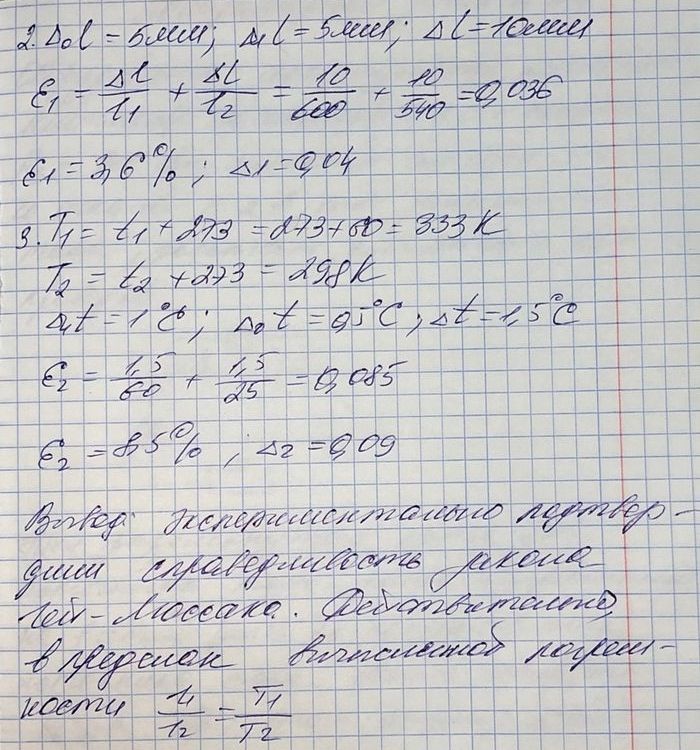 2. Δ₀l = 5мм; Δ₁l = 5мм; Δl = 10мм
ε₁ = Δl/l₁ + Δl/l₂ = 10/600 + 10/540 = 0,036
ε₁ = 3,6%; Δ₁ = 0,04
3. T₁ = t₁ + 273 = 273 + 60 = 333К
T₂ = t₂ + 273 = 298К
Δ₁t = 1°C; Δ₀t = 0,5°C; Δt = 1,5°C
ε₂ = 1,5/60 + 1,5/25 = 0,085
ε₂ = 8,5%; Δ₂ = 0,09
Вывод: экспериментально подтвер-
дили справедливость закона
Гей-Люссака. Действительно,
в пределах вычисленной погреш-
ности l₁/l₂ = T₁/T₂